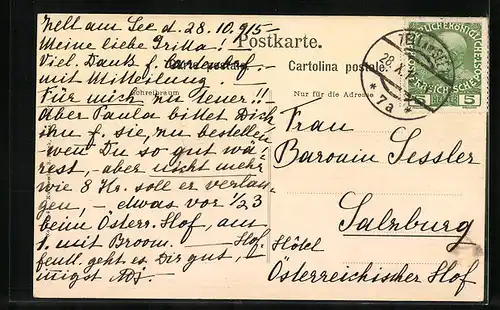 Zell am See d. 28.10.915-
Meine liebe Grilla!
Postkarte.
Viel. Dank f.
mit Mitteilung.
Cartolina postale.
Schreibraum
Nur für die Adresse
Für mich zu teuer!!
Aber Paula bittet Dich
ihn f. sie, zu bestellen
wen Du so gut wä-
rest, - aber nicht mehr
wie 8 Kr. soll er verlan-
gen, - etwas vor 1/23
beim Österr. Hof, am
1. mit Broom. - Hof-
fentl. geht es Dir gut,
nigst
Frau
Baronin Sessler
Salzburg
Hôtel
Österreichischer Hof
ZELL am SEE
28.X.15
* 7a *
5 5